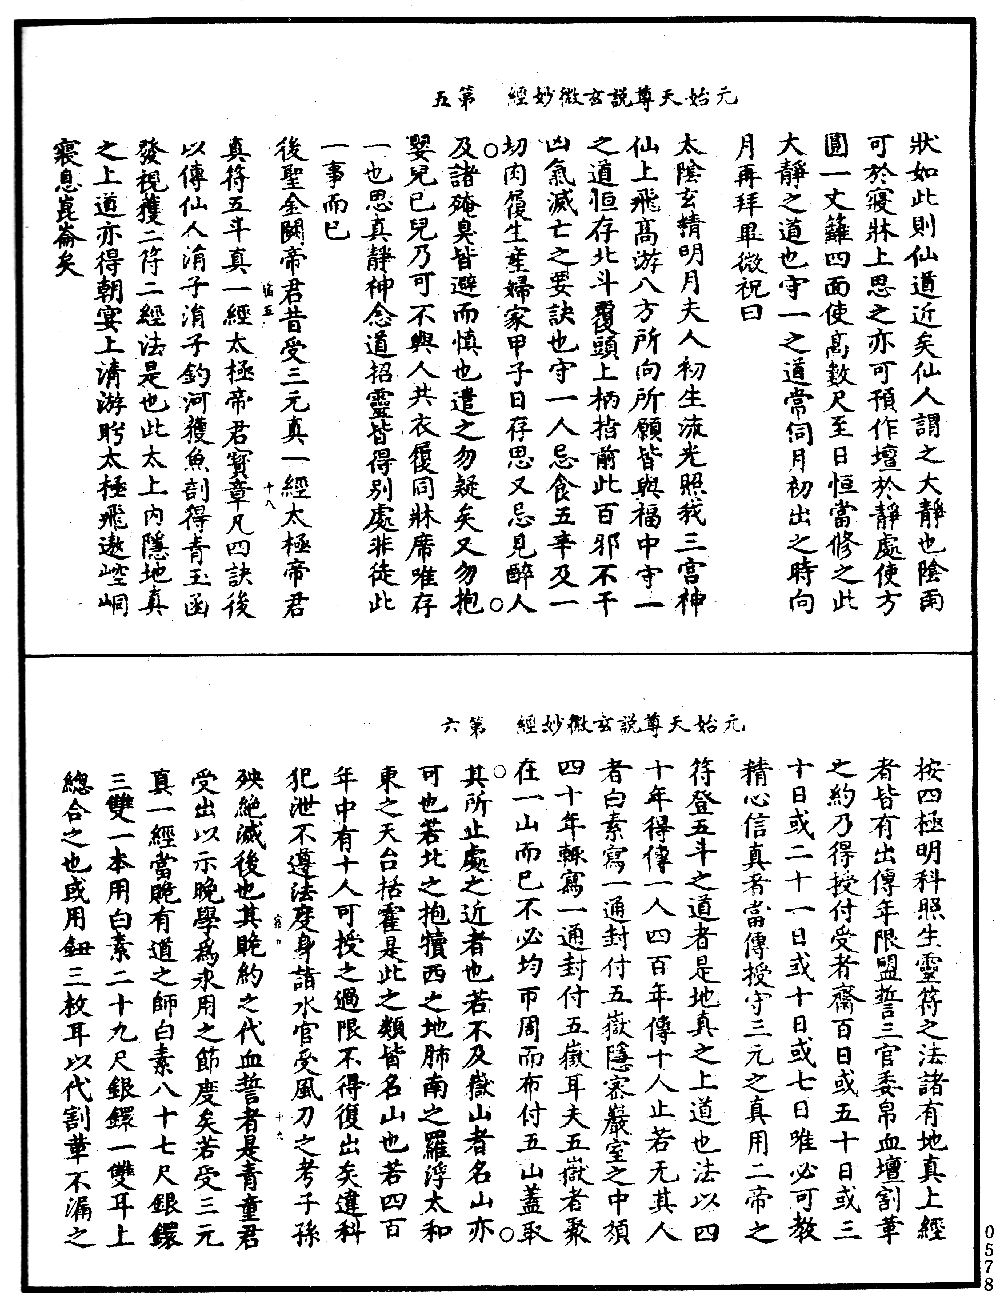 元始天尊說玄微妙經　第五
狀如此則仙道近矣仙人謂之大靜也陰雨
可於寢牀上思之亦可預作壇於靜處使方
圓一丈籬四面使高數尺至日恒當修之此
大靜之道也守一之道常伺月初出之時向
月再拜畢微祝曰
太陰玄精明月夫人初生流光照我三宫神
仙上飛高游八方所向所願皆與福中守一
之道恒存北斗覆頭上柄指前此百邪不干
凶氣滅亡之要訣也守一人忌食五辛及一
切肉履生產婦家甲子日存思又忌見醉人
及諸殗臭皆避而慎也遣之勿疑矣又勿抱
嬰兒已兒乃可不與人共衣履同牀席唯存
一也思真靜神念道招靈皆得別處非徒此
一事而已
後聖金闕帝君昔受三元真一經太極帝君
真符五斗真一經太極帝君寶章凡四訣後
以傳仙人涓子涓子釣河獲魚剖得青玉函
發視獲二符二經法是也此太上內隱地真
之上道亦得朝宴上清游眄太極飛遨崆峒
寢息崑崙矣
元始天尊說玄微妙經　第六
按四極明科照生靈符之法諸有地真上經
者皆有出傳年限盟誓三官委帛血壇割革
之約乃得授付受者齋百日或五十日或三
十日或二十一日或十日或七日唯必可教
精心信真者當傳授守三元之真用二帝之
符登五斗之道者是地真之上道也法以四
十年得傳一人四百年傳十人止若无其人
者白素寫一通封付五嶽隱密巖室之中須
四十年輒寫一通封付五嶽耳夫五嶽者聚
在一山而已不必均帀周而布付五山蓋取
其所止處之近者也若不及嶽山者名山亦
可也若北之抱犢西之地肺南之羅浮太和
東之天台括霍是此之類皆名山也若四百
年中有十人可授之過限不得復出矣違科
犯泄不遵法度身諸水官受風刀之考子孫
殃絕滅後也其晚約之代血誓者是青童君
受出以示晚學為永用之節度矣若受三元
真一經當晚有道之師白素八十七尺銀鐶
三雙一本用白素二十九尺銀鐶一雙耳上
總合之也或用鈕三枚耳以代割革不漏之
0578